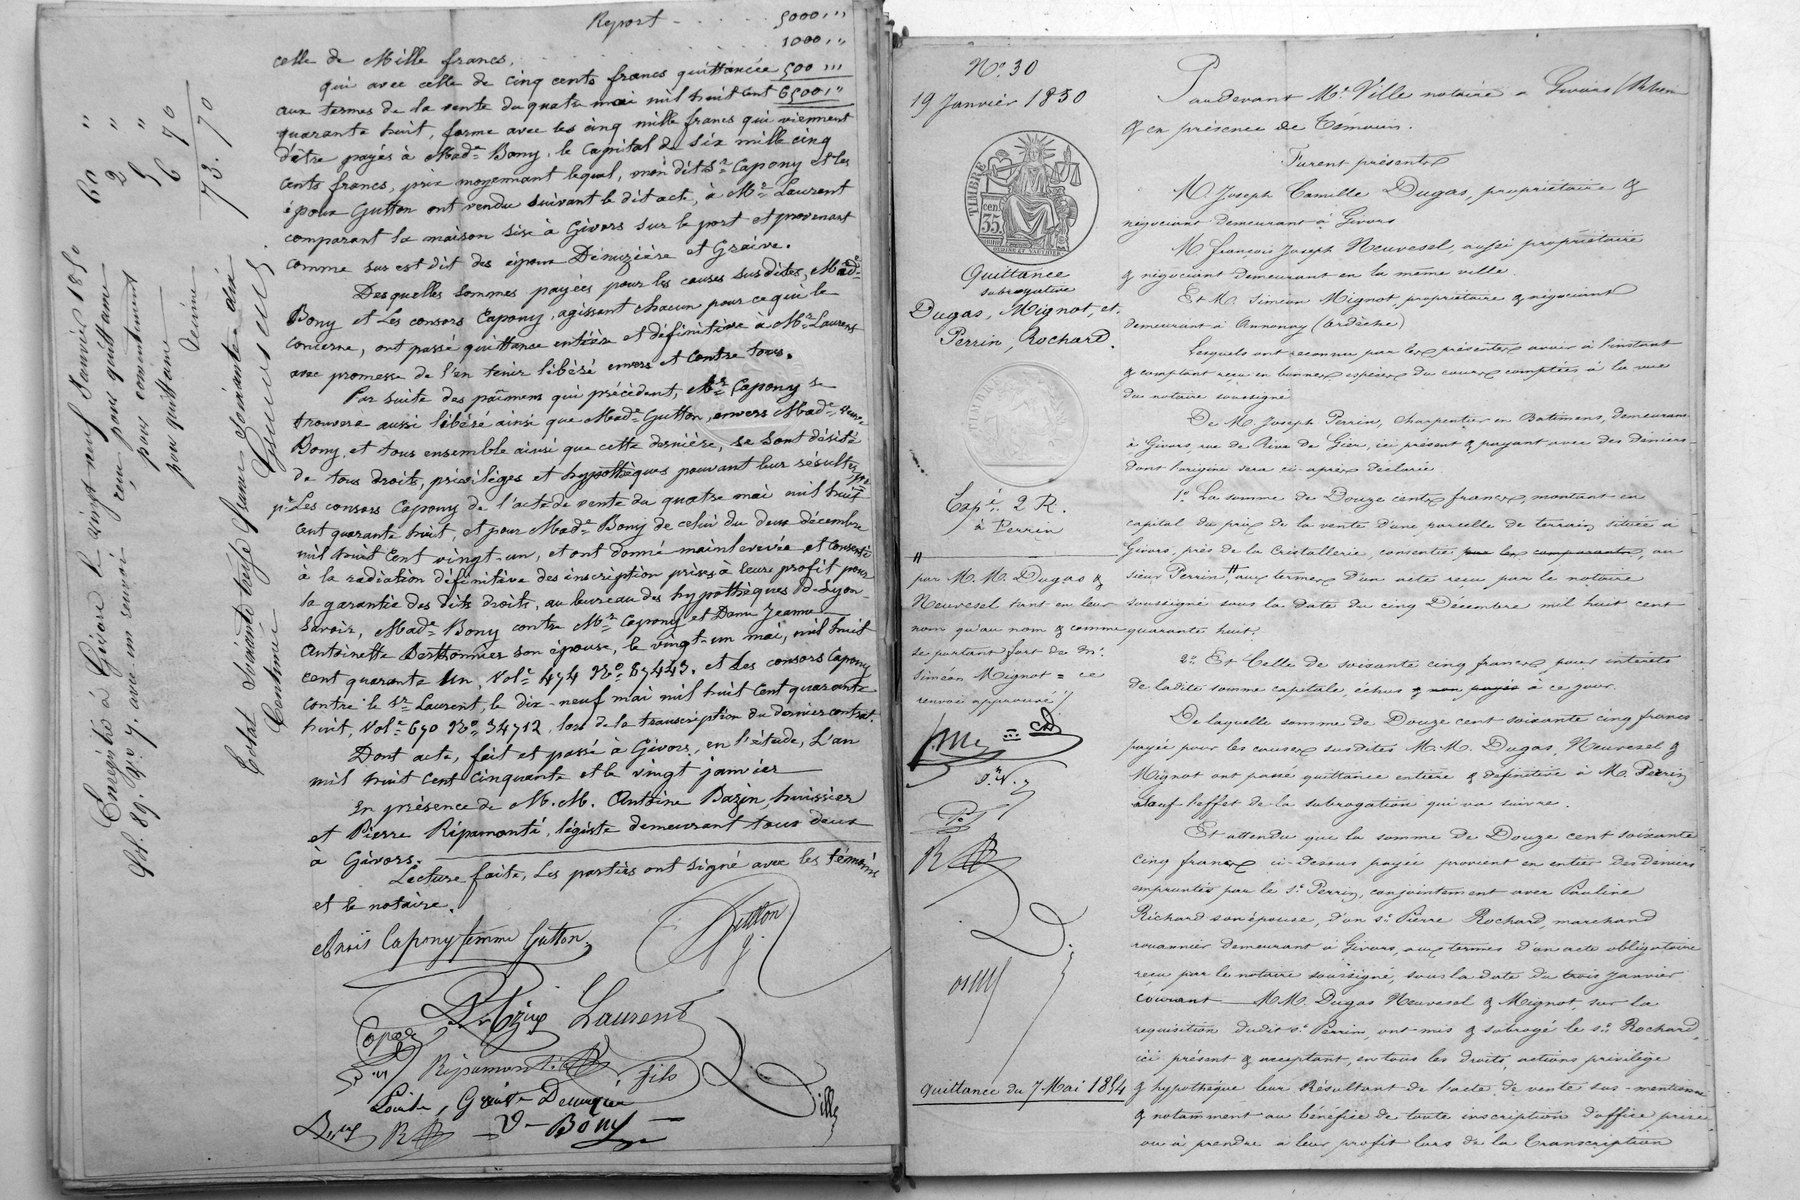 Report . . . 5000 "
1000 "
celle de Mille francs.
qui avec celle de cinq cents francs quittancée 500 "
aux termes de la vente du quatre mai mil huit cent 6500 "
quarante huit, forme avec les cinq mille francs qui viennent
d'être payés à Made Bony, le Capital de six mille cinq
cents francs, prix moyennant lequel, mon dit Sr Capony et les
époux Gutton ont vendu suivant le dit acte, à Mr Laurent
comparant la maison sise à Givors sur le port et provenant
comme sus est dit des époux Dénuzière et Graive.
Desquelles sommes payées pour les causes susdites, Made
Bony et Les consors Capony, agissant chacun pour ce qui le
concerne, ont passé quittance entière et définitive à Mr Laurent
avec promesse de l'en tenir libéré envers et contre tous.
Par suite des païmens qui précédent, Mr Capony se
trouvera aussi libéré ainsi que Made Gutton, envers Made veuve
Bony, et tous ensemble ainsi que cette dernière, se sont désisté
de tous droits, priviléges et hypothèques pouvant leur résulter
pr Les consors Capony de l'acte de vente du quatre mai mil huit
cent quarante huit, et pour Made Bony de celui du deux décembre
mil huit cent vingt-un, et ont donné mainlevée et consenti
à la radiation définitive des inscription prises à leur profit pour
la garantie des dits droits, au bureau des hypothèques de Lyon,
Savoir, Made Bony contre Mr Capony et Dame Jeanne
Antoinette Berthonnier son épouse, le vingt-un mai, mil huit
cent quarante un, Vol. 474 No 87443, et Les consors Capony
contre le Sr Laurent, le dix-neuf mai mil huit cent quarante
huit, Vol. 670 No 34712, lors de la transcription du dernier contrat.
Dont acte, fait et passé à Givors, en l'étude, L'an
mil huit cent cinquante et le vingt janvier
En présence de M. M. Antoine Bazin, huissier
et Pierre Ripamonté, légiste demeurant tous deux
à Givors.
Lecture faite, Les parties ont signé avec les témoins
et le notaire.
Anaïs Capony femme Gutton
Gutton
Laurent
Capony
Ripamonti fils
Ville
Bony
Enregistré à Givors le vingt neuf Janvier 1850
fol. 89. avec un renvoi
60 "
céu pour quittance 2 "
pour consentement 5 "
pour quittance 6 70
Décime
73.70
Total Soixante treize francs soixante dix
Centimes
No 30
19 Janvier 1850
TIMBRE
35
Quittance
subrogative
Dugas, Mignot, et
Perrin, Rochard.
Expée 2 R.
à Perrin
par M. M. Dugas &
Neuvesel tant en leur
nom qu'au nom & comme
se portant fort de Mr
Siméon Mignot = ce
renvoi approuvé
Quittance du 7 Mai 1854
Pardevant Me Ville notaire à Givors (Rhône
& en présence de Témoins.
Furent présents
M. Joseph Camille Dugas, propriétaire &
négociant demeurant à Givors
M. françois Joseph Neuvesel, aussi propriétaire
& négociant demeurant en la même ville.
Et M. Siméon Mignot, propriétaire & négociant
demeurant à Annonay (Ardèche)
Lesquels ont reconnu par les présentes avoir à l'instant
& comptant reçu en bonnes espèces du cours comptées à la vue
du notaire soussigné
De M. Joseph Perrin, Charpentier en Batimens, demeurant
à Givors, rue de Rive de Gier, ici présent & payant avec des deniers
dont l'origine sera ci-après déclarée
1o La somme de Douze cents francs, montant en
capital du prix de la vente d'une parcelle de terrain située à
Givors, près de la Cristallerie, consentie par les comparants, au
sieur Perrin, aux termes d'un acte reçu par le notaire
soussigné sous la date du cinq Décembre mil huit cent
quarante huit.
2o Et Celle de soixante cinq francs pour intérêts
de ladite somme capitale, échus & non payés à ce jour.
De laquelle somme de Douze cent soixante cinq francs
payée pour les causes susdites M. M. Dugas, Neuvesel &
Mignot ont passé quittance entière & définitive à M. Perrin
sauf l'effet de la subrogation qui va suivre.
Et attendu que la somme de Douze cent soixante
cinq francs ci-dessus payée provient en entier des deniers
empruntés par le Sr Perrin, conjointement avec Pauline
Richard son épouse, d'un Sr Pierre Rochard, marchand
rouannier demeurant à Givors, aux termes d'un acte obligatoire
reçu par le notaire soussigné, sous la date du trois Janvier
courant M. M. Dugas Neuvesel & Mignot, sur la
requisition dudit Sr Perrin, ont mis & subrogé le Sr Rochard,
ici présent & acceptant, en tous les droits, actions privilége
& hypothèque leur Résultant de l'acte de vente sus-mentionné
& notamment au bénéfice de toute inscription d'office prise
ou à prendre à leur profit lors de la transcription